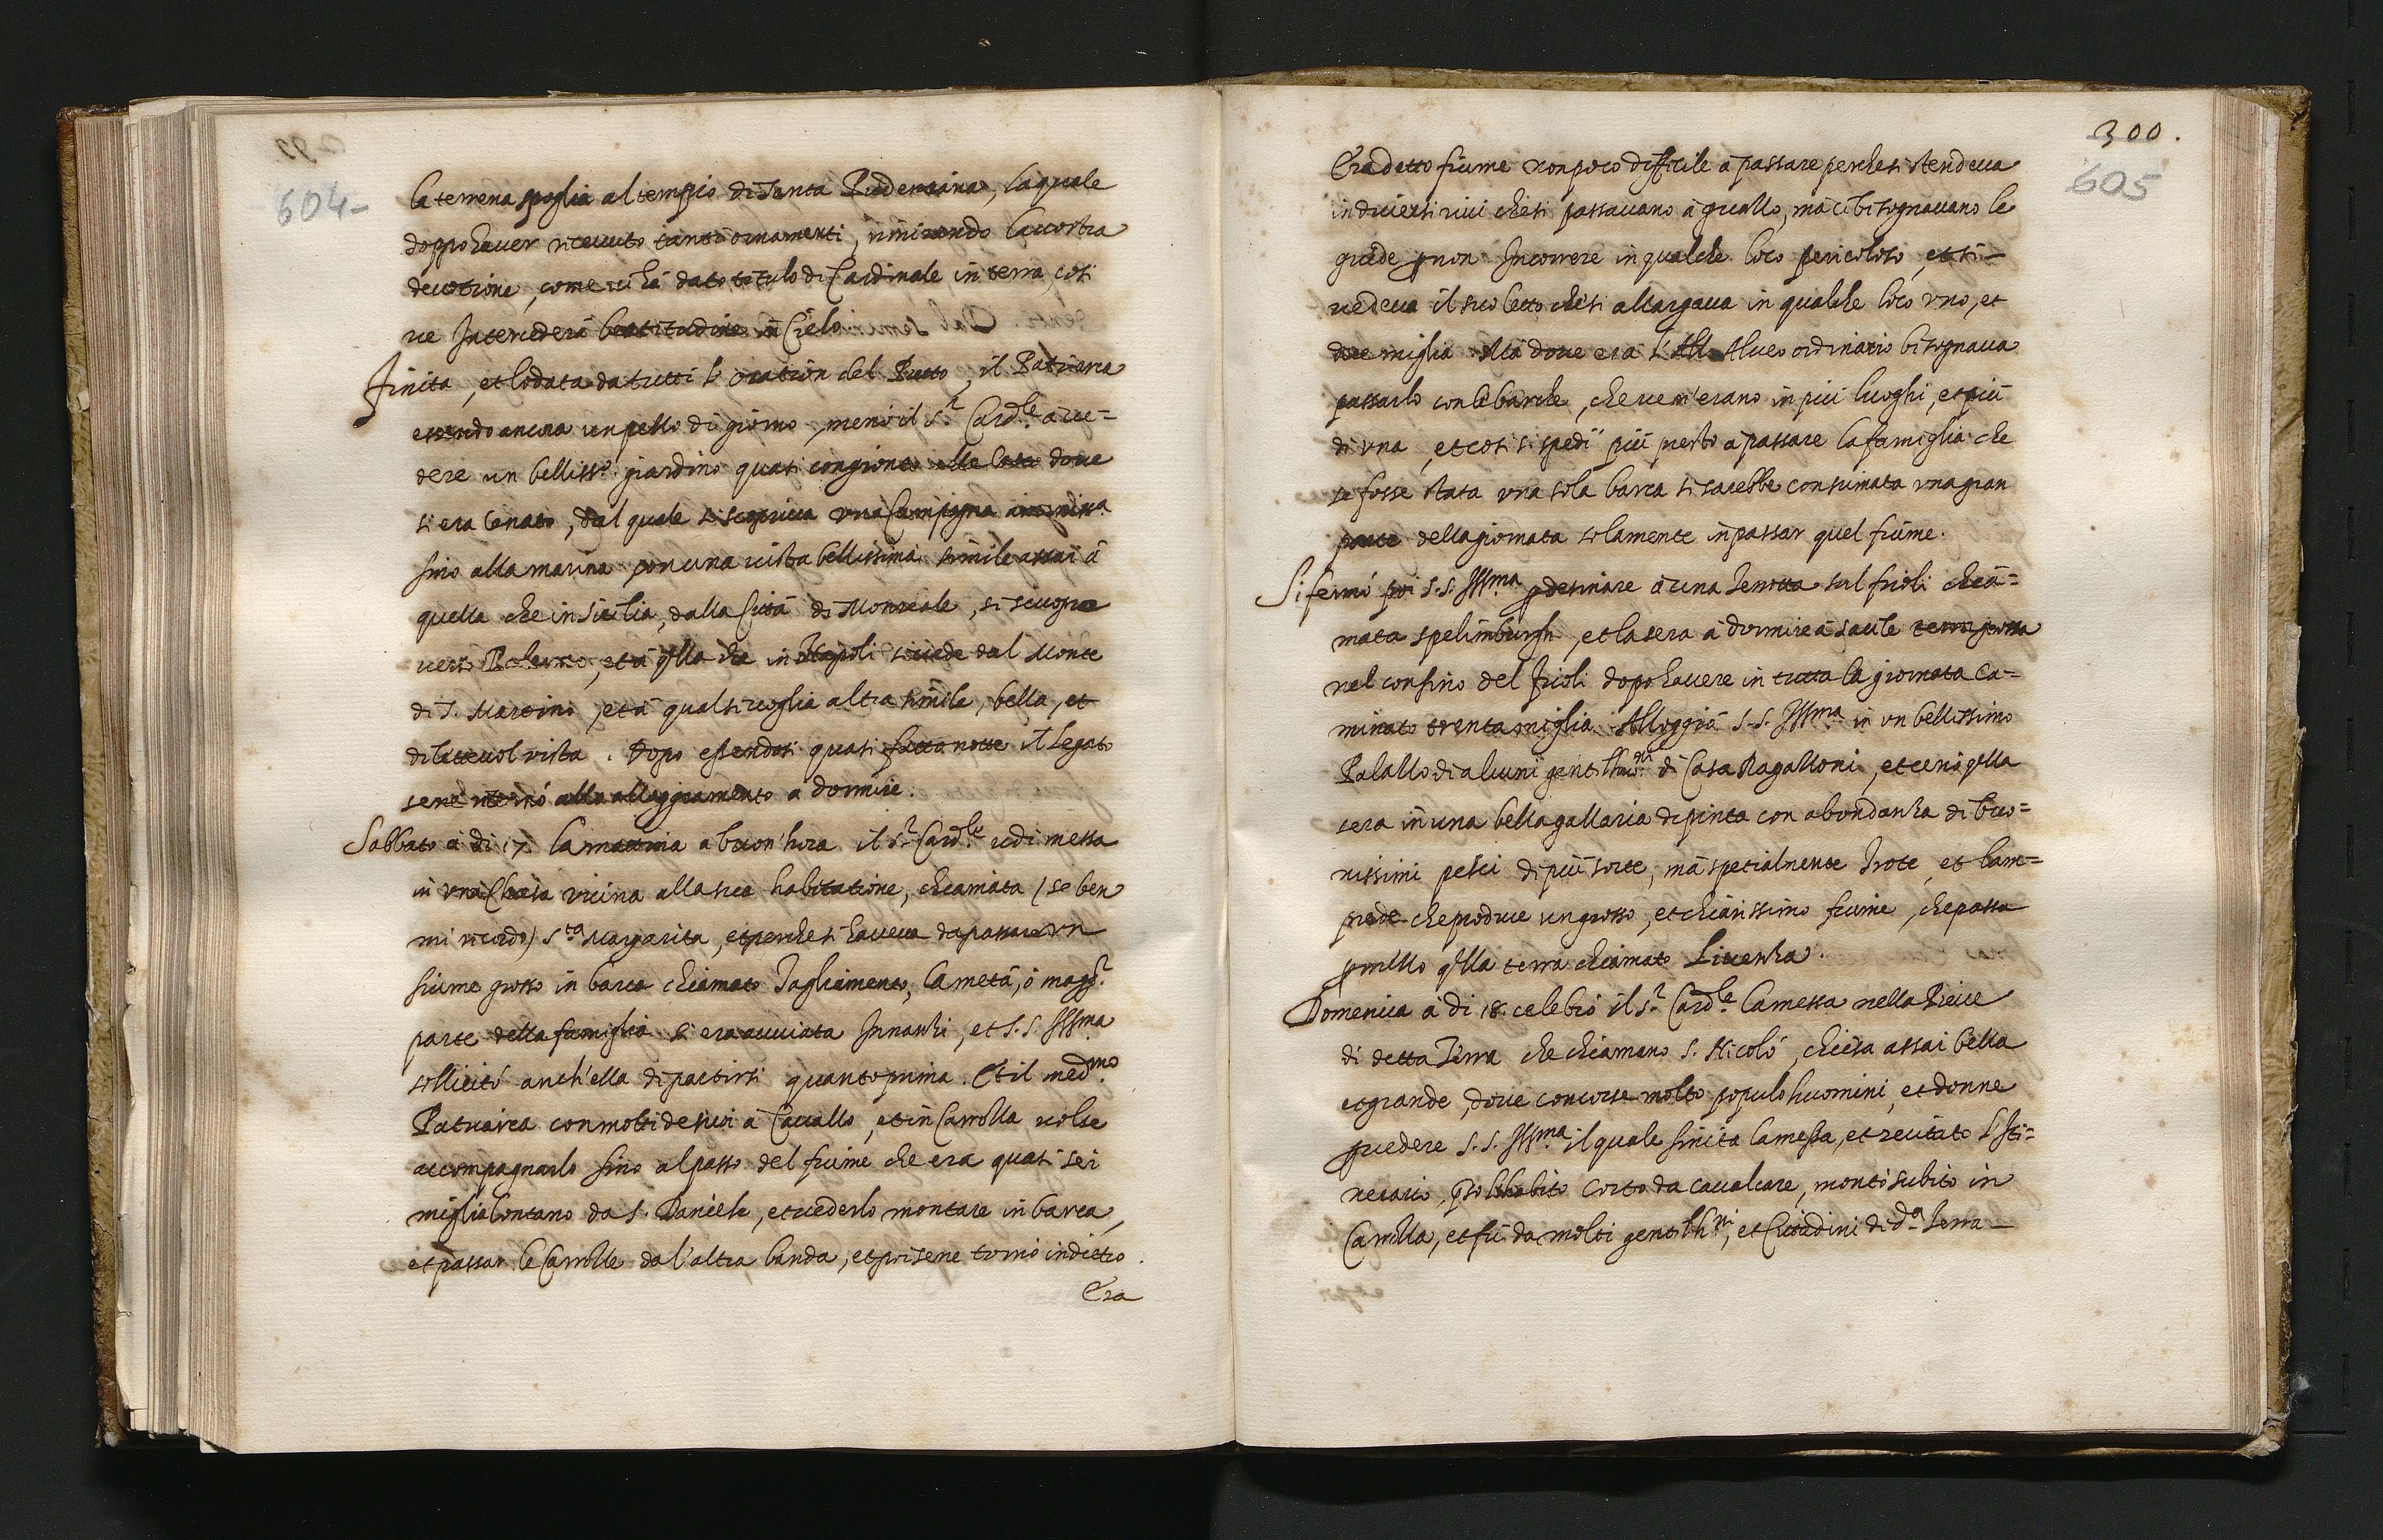 604-
la terrena spoglia al tempio di Santa Pudentiana, la quale
doppo hauer riceuuto tanti ornamenti, rimirando la uostra
deuotione, come ui hà dato titulo di Cardinale in terra, cosi
ue Intercederà beatitudine in Cielo.
Finita, et lodata da tutti l'oration del Putto, il Patriarca
essendo ancora un pezzo di giorno, menò il s.r Card.le à ue=
dere un belliss.o giardino quasi congionto alla Casa doue
si era cenato, dal quale si scopriua una Campagna
sino alla marina con una uista bellissima simile assai à
quella che in Sicilia, dalla Città di Monreale, si scuopre
uerso Palermo, et à q.lla che in Napoli si uede dal Monte
di S. Martino, et à qualsiuoglia altra simile, bella, et
diletteuol uista. Dopo essendosi quasi fatta notte il Legato
se ne ritornò allo alloggiamento a dormire.
Sabbato à dì 17. la mattina a buon'hora il s.r Card.le udì messa
in una Chiesa uicina alla sua habitatione, chiamata (se ben
mi ricordo) S.ta Margarita, et perche si haueua da passare un
fiume grosso in barca chiamato Tagliamento, la metà, ò magg.r
parte della famiglia si era auuiata Innanzi, et S.S. Ill.ma
sollicitò anch'ella di partirsi quanto prima. Et il med.mo
Patriarca con molti de suoi à Cauallo, et in Carrozza uolse
accompagnarlo sino al passo del fiume che era quasi sei
miglia lontano da S. Daniele, et uederlo montare in barca,
et passar le Carrozze da l'altra banda, et poi se ne tornò indietro.
Era
300.
605
Era detto fiume non poco difficile à passare perche si stendeua
in diuersi riui che si passauano à guazzo, mà ci bisognauano le
guide p non Incorrere in qualche loco pericoloso, et si
uedeua il suo letto che si allargaua in qualche loco uno, et
due miglia. Mà doue era l'Alueo ordinario bisognaua
passarlo con le barche, che ue n'erano in più luoghi, et più
di una, et cosi si spedì più presto à passare la famiglia che
se fosse stata una sola barca si sarebbe consumata una gran
parte della giornata solamente in passar quel fiume.
Si fermò poi S.S. Ill.ma p desinare à una Terra sul frioli chia=
mata spelimburgh, et la sera à dormire à Sacile terra grossa
nel confino del Frioli dopo hauere in tutta la giornata ca=
minato trenta miglia. Alloggiò S.S. Ill.ma in un bellissimo
Palazzo di alcuni gentilhuo.ni di Casa Ragazzoni, et cenò q.lla
sera in una bella gallaria dipinta con abondanza di buo=
nissimi pesci di più sorte, mà spetialmente Trote, et lam=
prede che produce un grosso, et chiarissimo fiume, che passa
p mezzo q.lla terra chiamato Liuenza.
Domenica à dì 18. celebrò il s.r Card.le la messa nella Pieue
di detta Terra che chiamano S. Nicolò, chiesa assai bella
et grande, doue concorse molto populo huomini, et donne
p uedere S.S. Ill.ma il quale finita la messa, et recitato l'Iti=
nerario, preso l'habito corto da caualcare, montò subito in
Carrozza, et fù da molti gentilh.ni, et Cittadini di d.a Terra